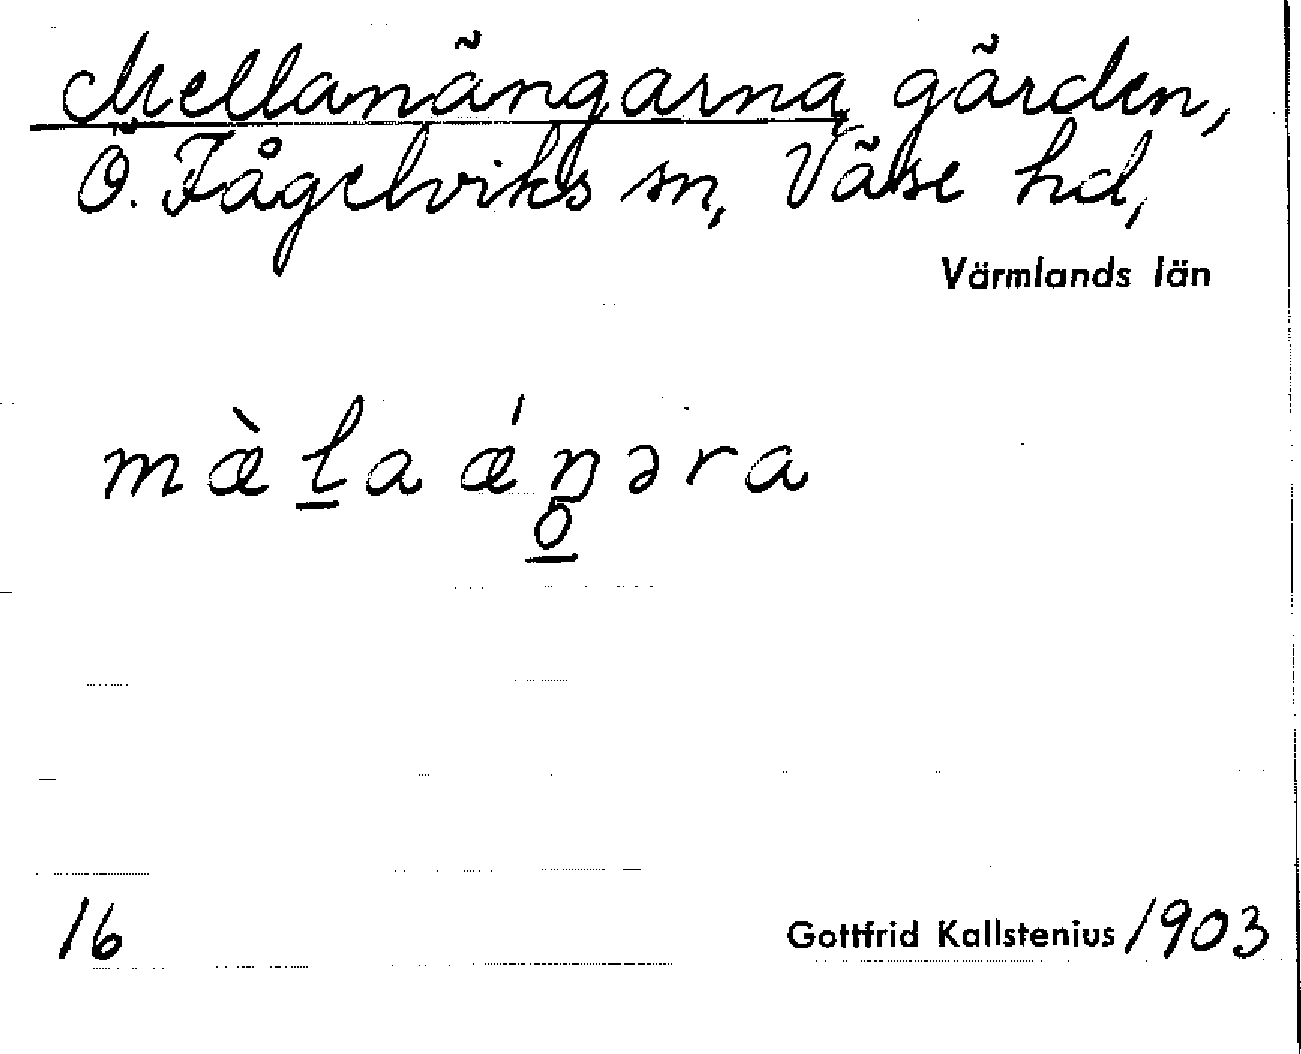 Mellanängarna gården,
Ö. Fågelviks sn, Väse hd,
Värmlands län
mæ̀l̠aǽŋ̥̠əra
16
Gottfrid Kallstenius 1903